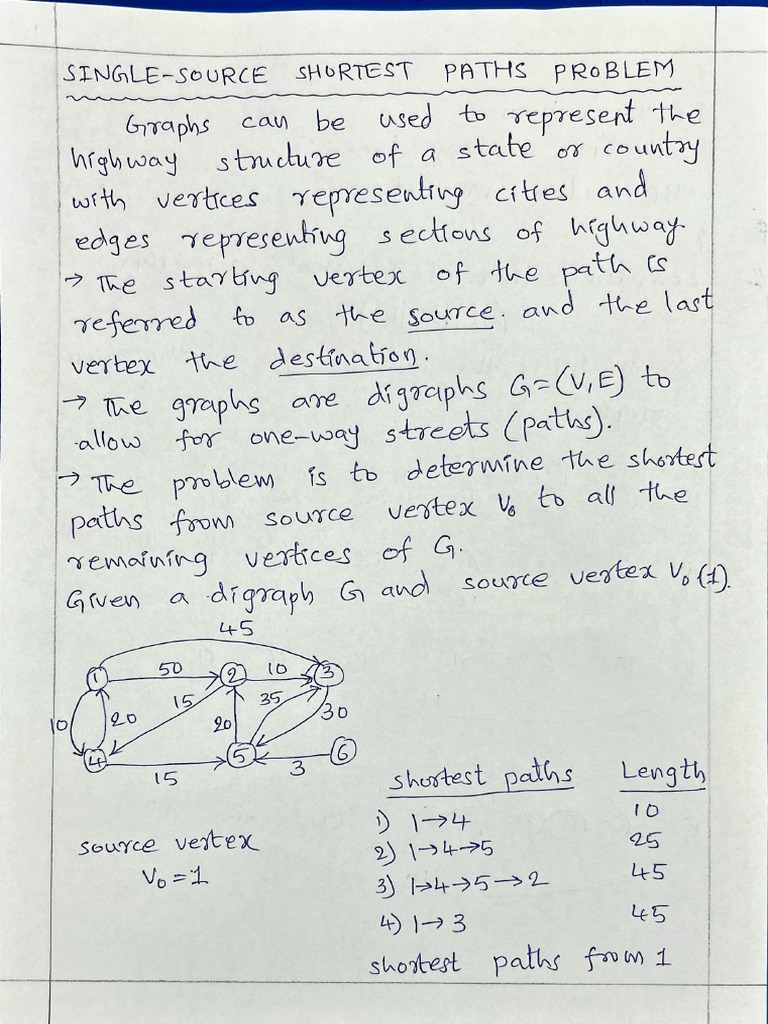 SINGLE-SOURCE SHORTEST PATHS PROBLEM
Graphs can be used to represent the
highway structure of a state or country
with vertices representing cities and
edges representing sections of highway.
→ The starting vertex of the path is
referred to as the source. and the last
vertex the destination.
→ The graphs are digraphs G=(V,E) to
allow for one-way streets (paths).
→ The problem is to determine the shortest
paths from source vertex V₀ to all the
remaining vertices of G.
Given a digraph G and source vertex V₀(1).
45
1 50 2 10 3
10 20 15 20 35 30
4 15 5 3 6
source vertex
V₀=1
shortest paths Length
1) 1→4 10
2) 1→4→5 25
3) 1→4→5→2 45
4) 1→3 45
shortest paths from 1